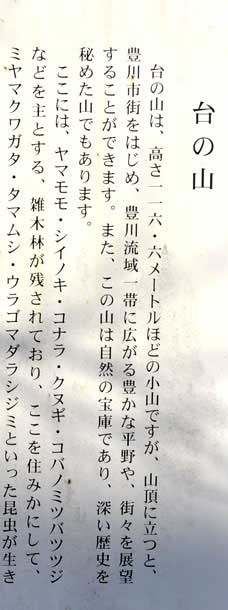 台の山
台の山は、高さ一一六・六メートルほどの小山ですが、山頂に立つと、
豊川市街をはじめ、豊川流域一帯に広がる豊かな平野や、街々を展望
することができます。また、この山は自然の宝庫であり、深い歴史を
秘めた山でもあります。
ここには、ヤマモモ・シイノキ・コナラ・クヌギ・コバノミツバツツジ
などを主とする、雑木林が残されており、ここを住みかにして、
ミヤマクワガタ・タマムシ・ウラゴマダラシジミといった昆虫が生き